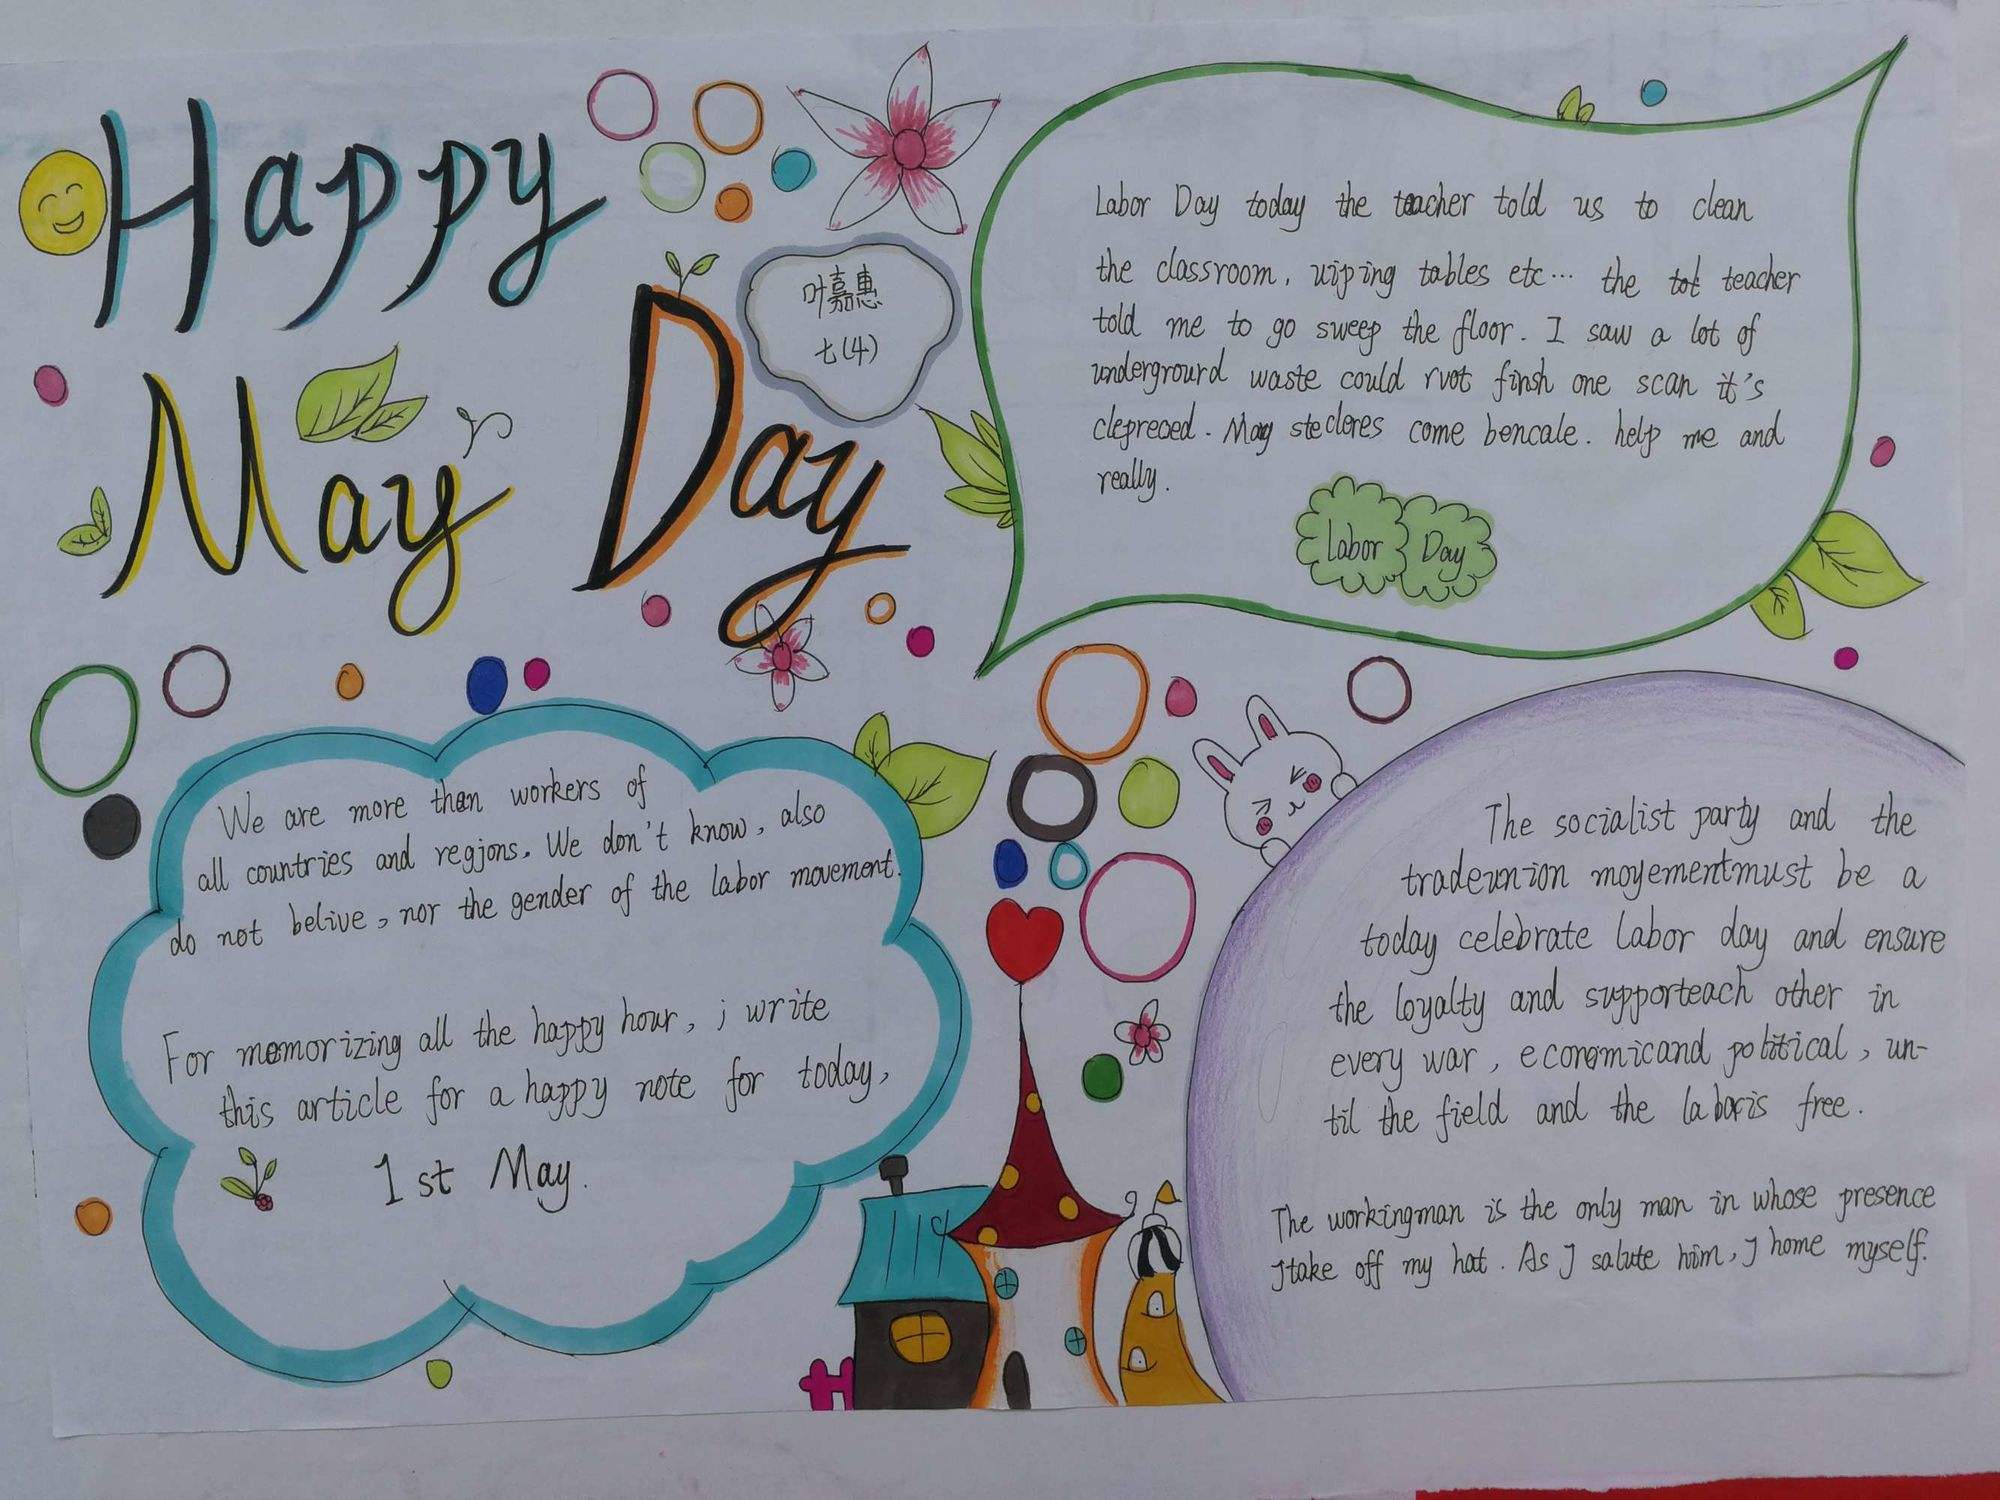 Happy
May Day
叶嘉惠
七(4)
Labor Day today the teacher told us to clean
the classroom, wiping tables etc... the teacher
told me to go sweep the floor. I saw a lot of
undergrourd waste could rvot finsh one scan it's
clepreced. May stecleres come bencale. help me and
really.
Labor Day
We are more than workers of
all countries and regjons. We don't know, also
do not belive, nor the gender of the labor movement.
For memorizing all the happy hour, j write
this article for a happy note for today,
1st May.
The socialist party and the
tradeunion moyementmust be a
today celebrate labor day and ensure
the loyalty and supporteach other in
every war, economicand political, un-
til the field and the laboris free.
The workingman is the only man in whose presence
Jtake off my hat. As J salute him, J home myself.